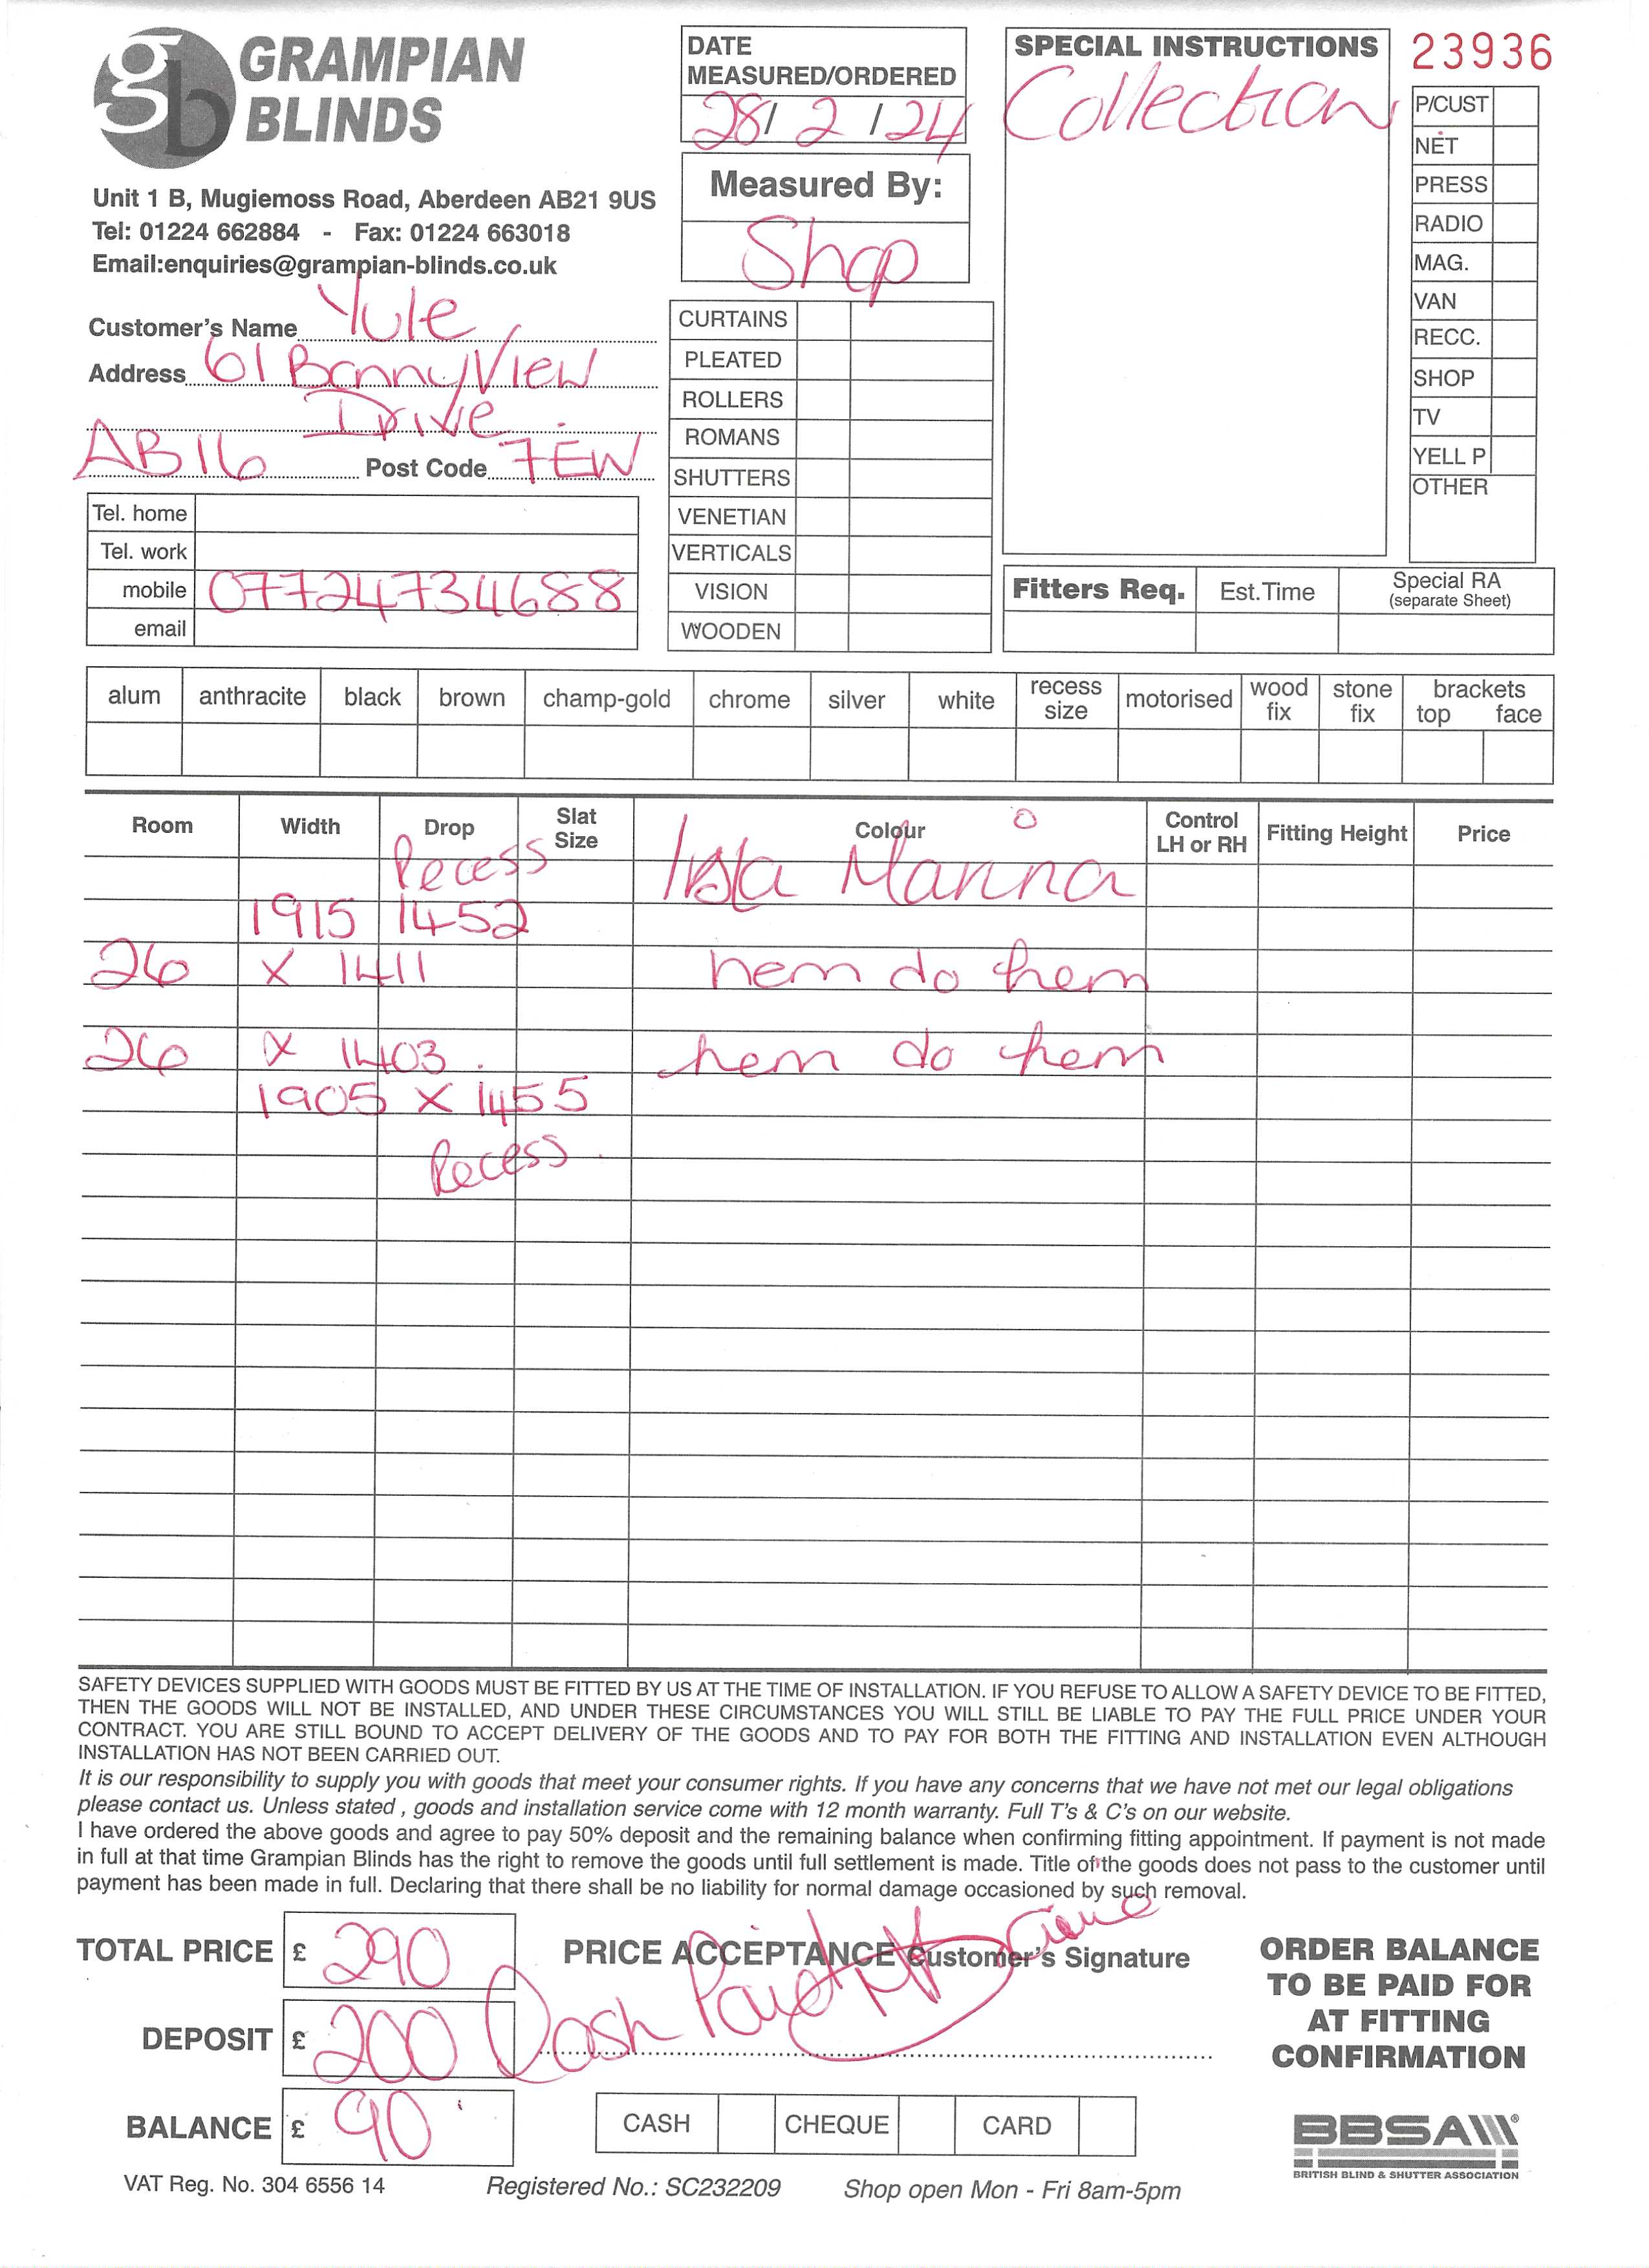 gb GRAMPIAN
BLINDS
Unit 1 B, Mugiemoss Road, Aberdeen AB21 9US
Tel: 01224 662884 - Fax: 01224 663018
Email:enquiries@grampian-blinds.co.uk
Customer's Name Yule
Address 61 BonnyView
Drive
AB16 Post Code 7EW
Tel. home
Tel. work
mobile 07724734688
email
DATE
MEASURED/ORDERED
28/ 2 / 24
Measured By:
Shop
CURTAINS
PLEATED
ROLLERS
ROMANS
SHUTTERS
VENETIAN
VERTICALS
VISION
WOODEN
SPECIAL INSTRUCTIONS
Collection
23936
P/CUST
NET
PRESS
RADIO
MAG.
VAN
RECC.
SHOP
TV
YELL P
OTHER
Fitters Req. Est.Time Special RA
(separate Sheet)
alum anthracite black brown champ-gold chrome silver white recess size motorised wood fix stone fix brackets top face
Room Width Drop Slat Size Colour Control LH or RH Fitting Height Price
Recess Marina
1915 1452
26 x 1411 hem do hem
26 x 1403. hem do hem
1905 x 1455
Recess.
SAFETY DEVICES SUPPLIED WITH GOODS MUST BE FITTED BY US AT THE TIME OF INSTALLATION. IF YOU REFUSE TO ALLOW A SAFETY DEVICE TO BE FITTED,
THEN THE GOODS WILL NOT BE INSTALLED, AND UNDER THESE CIRCUMSTANCES YOU WILL STILL BE LIABLE TO PAY THE FULL PRICE UNDER YOUR
CONTRACT. YOU ARE STILL BOUND TO ACCEPT DELIVERY OF THE GOODS AND TO PAY FOR BOTH THE FITTING AND INSTALLATION EVEN ALTHOUGH
INSTALLATION HAS NOT BEEN CARRIED OUT.
It is our responsibility to supply you with goods that meet your consumer rights. If you have any concerns that we have not met our legal obligations
please contact us. Unless stated , goods and installation service come with 12 month warranty. Full T's & C's on our website.
I have ordered the above goods and agree to pay 50% deposit and the remaining balance when confirming fitting appointment. If payment is not made
in full at that time Grampian Blinds has the right to remove the goods until full settlement is made. Title of the goods does not pass to the customer until
payment has been made in full. Declaring that there shall be no liability for normal damage occasioned by such removal.
TOTAL PRICE £ 290
PRICE ACCEPTANCE Customer's Signature
DEPOSIT £ 200 Cash Paid
BALANCE £ 90
CASH CHEQUE CARD
ORDER BALANCE
TO BE PAID FOR
AT FITTING
CONFIRMATION
BBSA
BRITISH BLIND & SHUTTER ASSOCIATION
VAT Reg. No. 304 6556 14 Registered No.: SC232209 Shop open Mon - Fri 8am-5pm